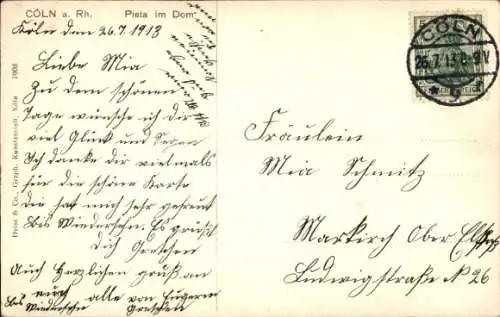 CÖLN a. Rh. Pieta im Dom
Köln den 26.7.1913
Liebe Mia
Zu dem schönen
Tage wünsche ich dir
viel Glück und Segen
Ich danke dir vielmals
für die schöne Karte
die hat mich sehr gefreut
Bis Wiedersehn. Es grüßt
dich Gretchen
Auch Herzlichen gruß an
euch alle von
Bis Wiedersehn Gretchen
Heiss & Co., Graph. Kunstanstalt, Köln 1906
CÖLN
26.7.13.8-9V
Fräulein
Mia Schmitz
Markirch Ober Elsaß
Ludwigstraße N 26